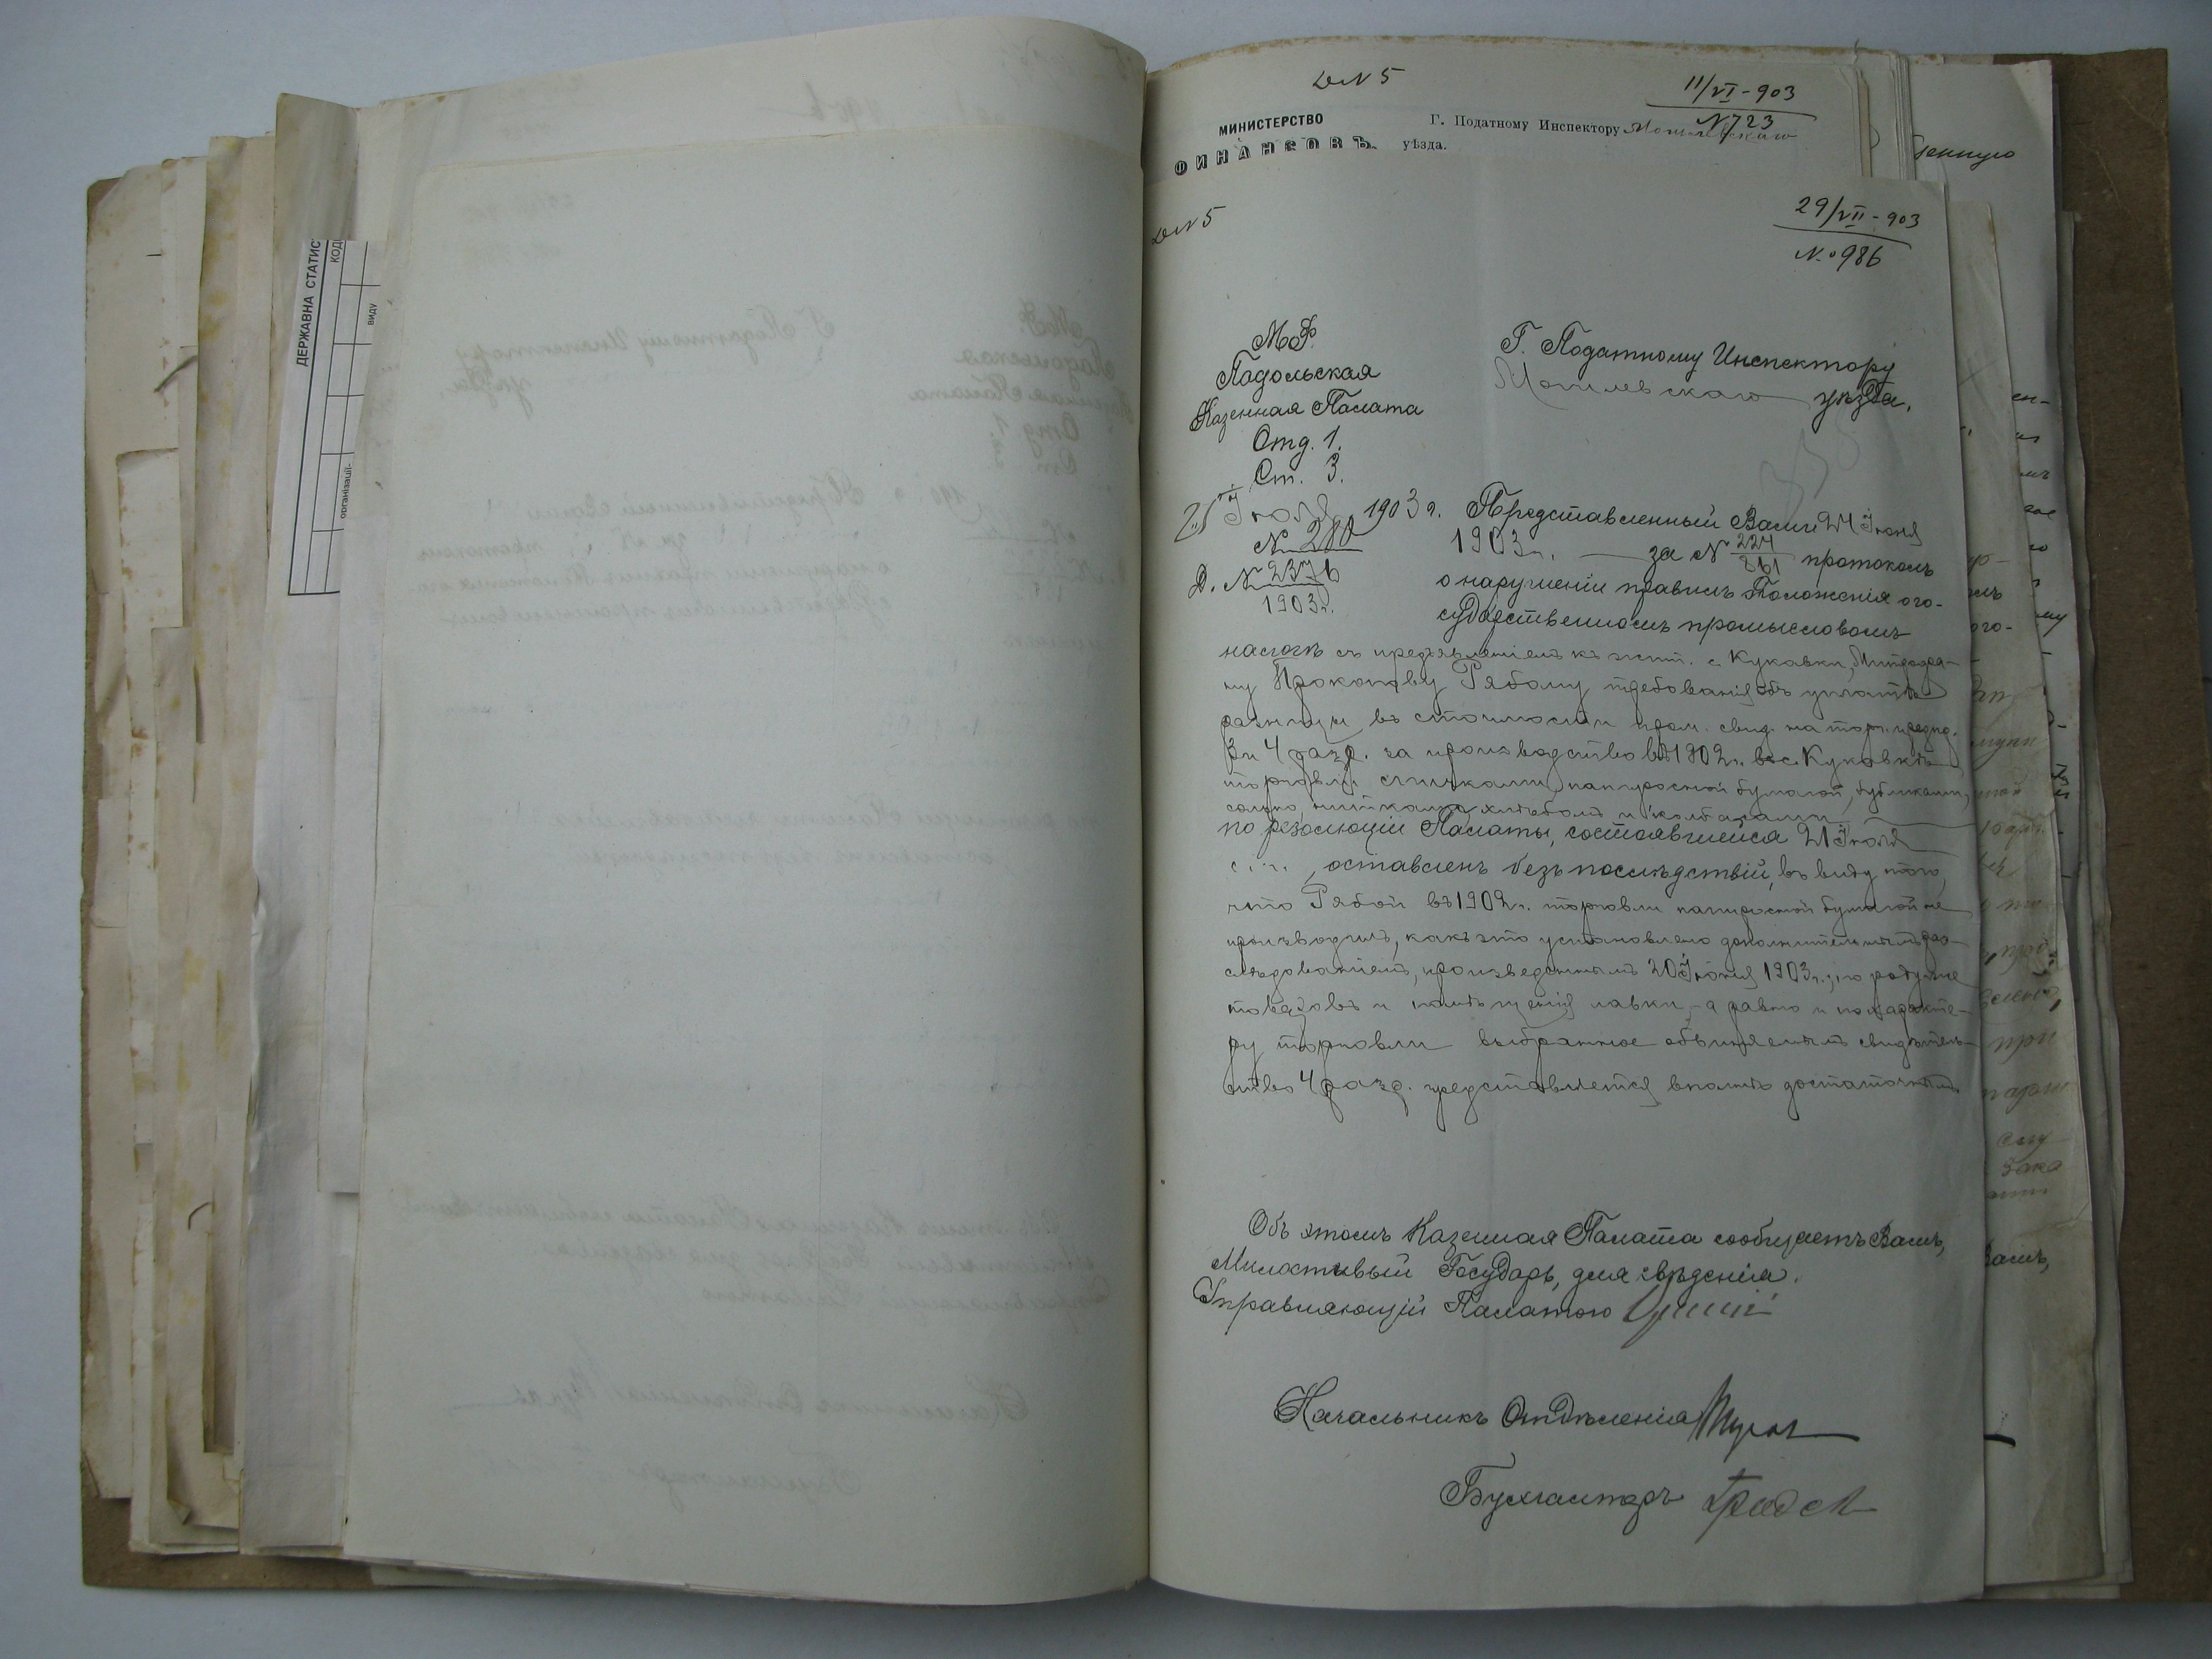 ДЕРЖАВНА СТАТИС
КОД
ВИДУ
організації-
D N 5
11/VI - 903
N 723
МИНИСТЕРСТВО
ФИНАНСОВЪ.
Г. Податному Инспектору Могилевскаго
уѣзда.
D N 5
29/VII - 903
N. 986
М.Ф.
Подольская
Казенная Палата
Отд. 1.
Ст. 3.
25 Іюля 1903 г.
N 280
Д. N 2376
1903 г.
Г. Податному Инспектору
Могилевскаго уѣзда.
Представленный Вами 24 Іюня
1903 г. за N 224/861 протоколъ
о нарушеніи правилъ Положенія о го-
сударственномъ промысловомъ
налогѣ съ предъявленіемъ къ жит. с. Кукавки,
ну Прокопову Рябому требованія объ уплатѣ
разницы въ стоимости пром. свид. на торг. предпр.
3 и 4 разр. за производство въ 1902 г. въ с. Кукавкѣ
торговли спичками, папиросной бумагой, бубликами,
солью, нитками, хлѣбомъ и колбасами
по резолюціи Палаты, состоявшейся 21 Іюля
с. г., оставленъ безъ послѣдствій, въ виду того,
что Рябой въ 1902 г. торговли папиросной бумагой не
производилъ, какъ это установлено дополнительнымъ раз-
слѣдованіемъ, произведеннымъ 20 Іюня 1903 г.; по роду же
товаровъ и помѣщенія лавки, а равно и по характе-
ру торговли выбранное обвиняемымъ свидѣтель-
ство 4 разр. представляется вполнѣ достаточнымъ.
Объ этомъ Казенная Палата сообщаетъ Вамъ,
Милостивый Государь, для свѣдѣнія.
Управляющій Палатою
Начальникъ Отдѣленія
Бухгалтеръ